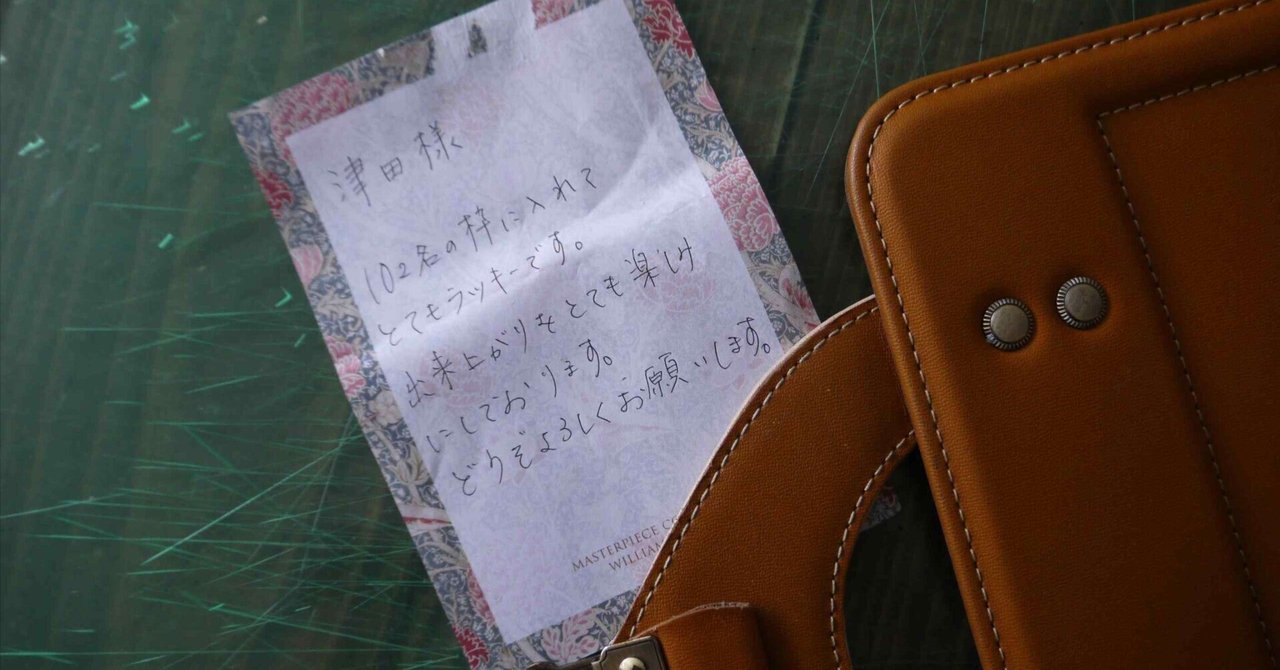 津田様
102名の枠に入れて
とてもラッキーです。
出来上がりをとても楽しみ
にしております。
どうぞよろしくお願いします。
MASTERPIECE CO
WILLIA